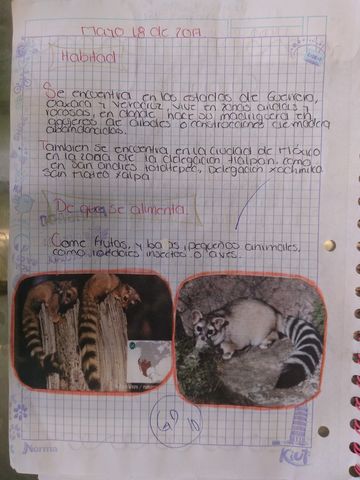 Mayo 18 de 2017
Habitad
Se encuentra en los estados de Guerrero,
Oaxaca y Veracruz, vive en zonas aridas y
rocosas, en donde hace su madriguera en
agujeros de arboles o construcciones de madera
abandonadas.
Tambien se encuentra en la Ciudad de México
en la zona de la delegacion tlalpan. como
en san andres totoltepec, delegacion xochimilco
San Mateo xalpa
De que se alimenta.
Come frutas, y bayas, pequeños animales,
como roedores insectos o aves.
10
Norma
Kiut